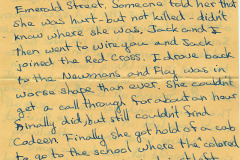 Emerald Street. Someone told her that
she was hurt - but not killed - didn't
know where she was. Jack and I
then went to wire you and Jack
joined the Red Cross. I drove back
to the Newmans and Flay was in
worse shape than ever, she couldn't
get a call through for about an hour
Finally did, but still couldn't find
Cadeen. Finally she got hold of a cab
to go to the school where the colored